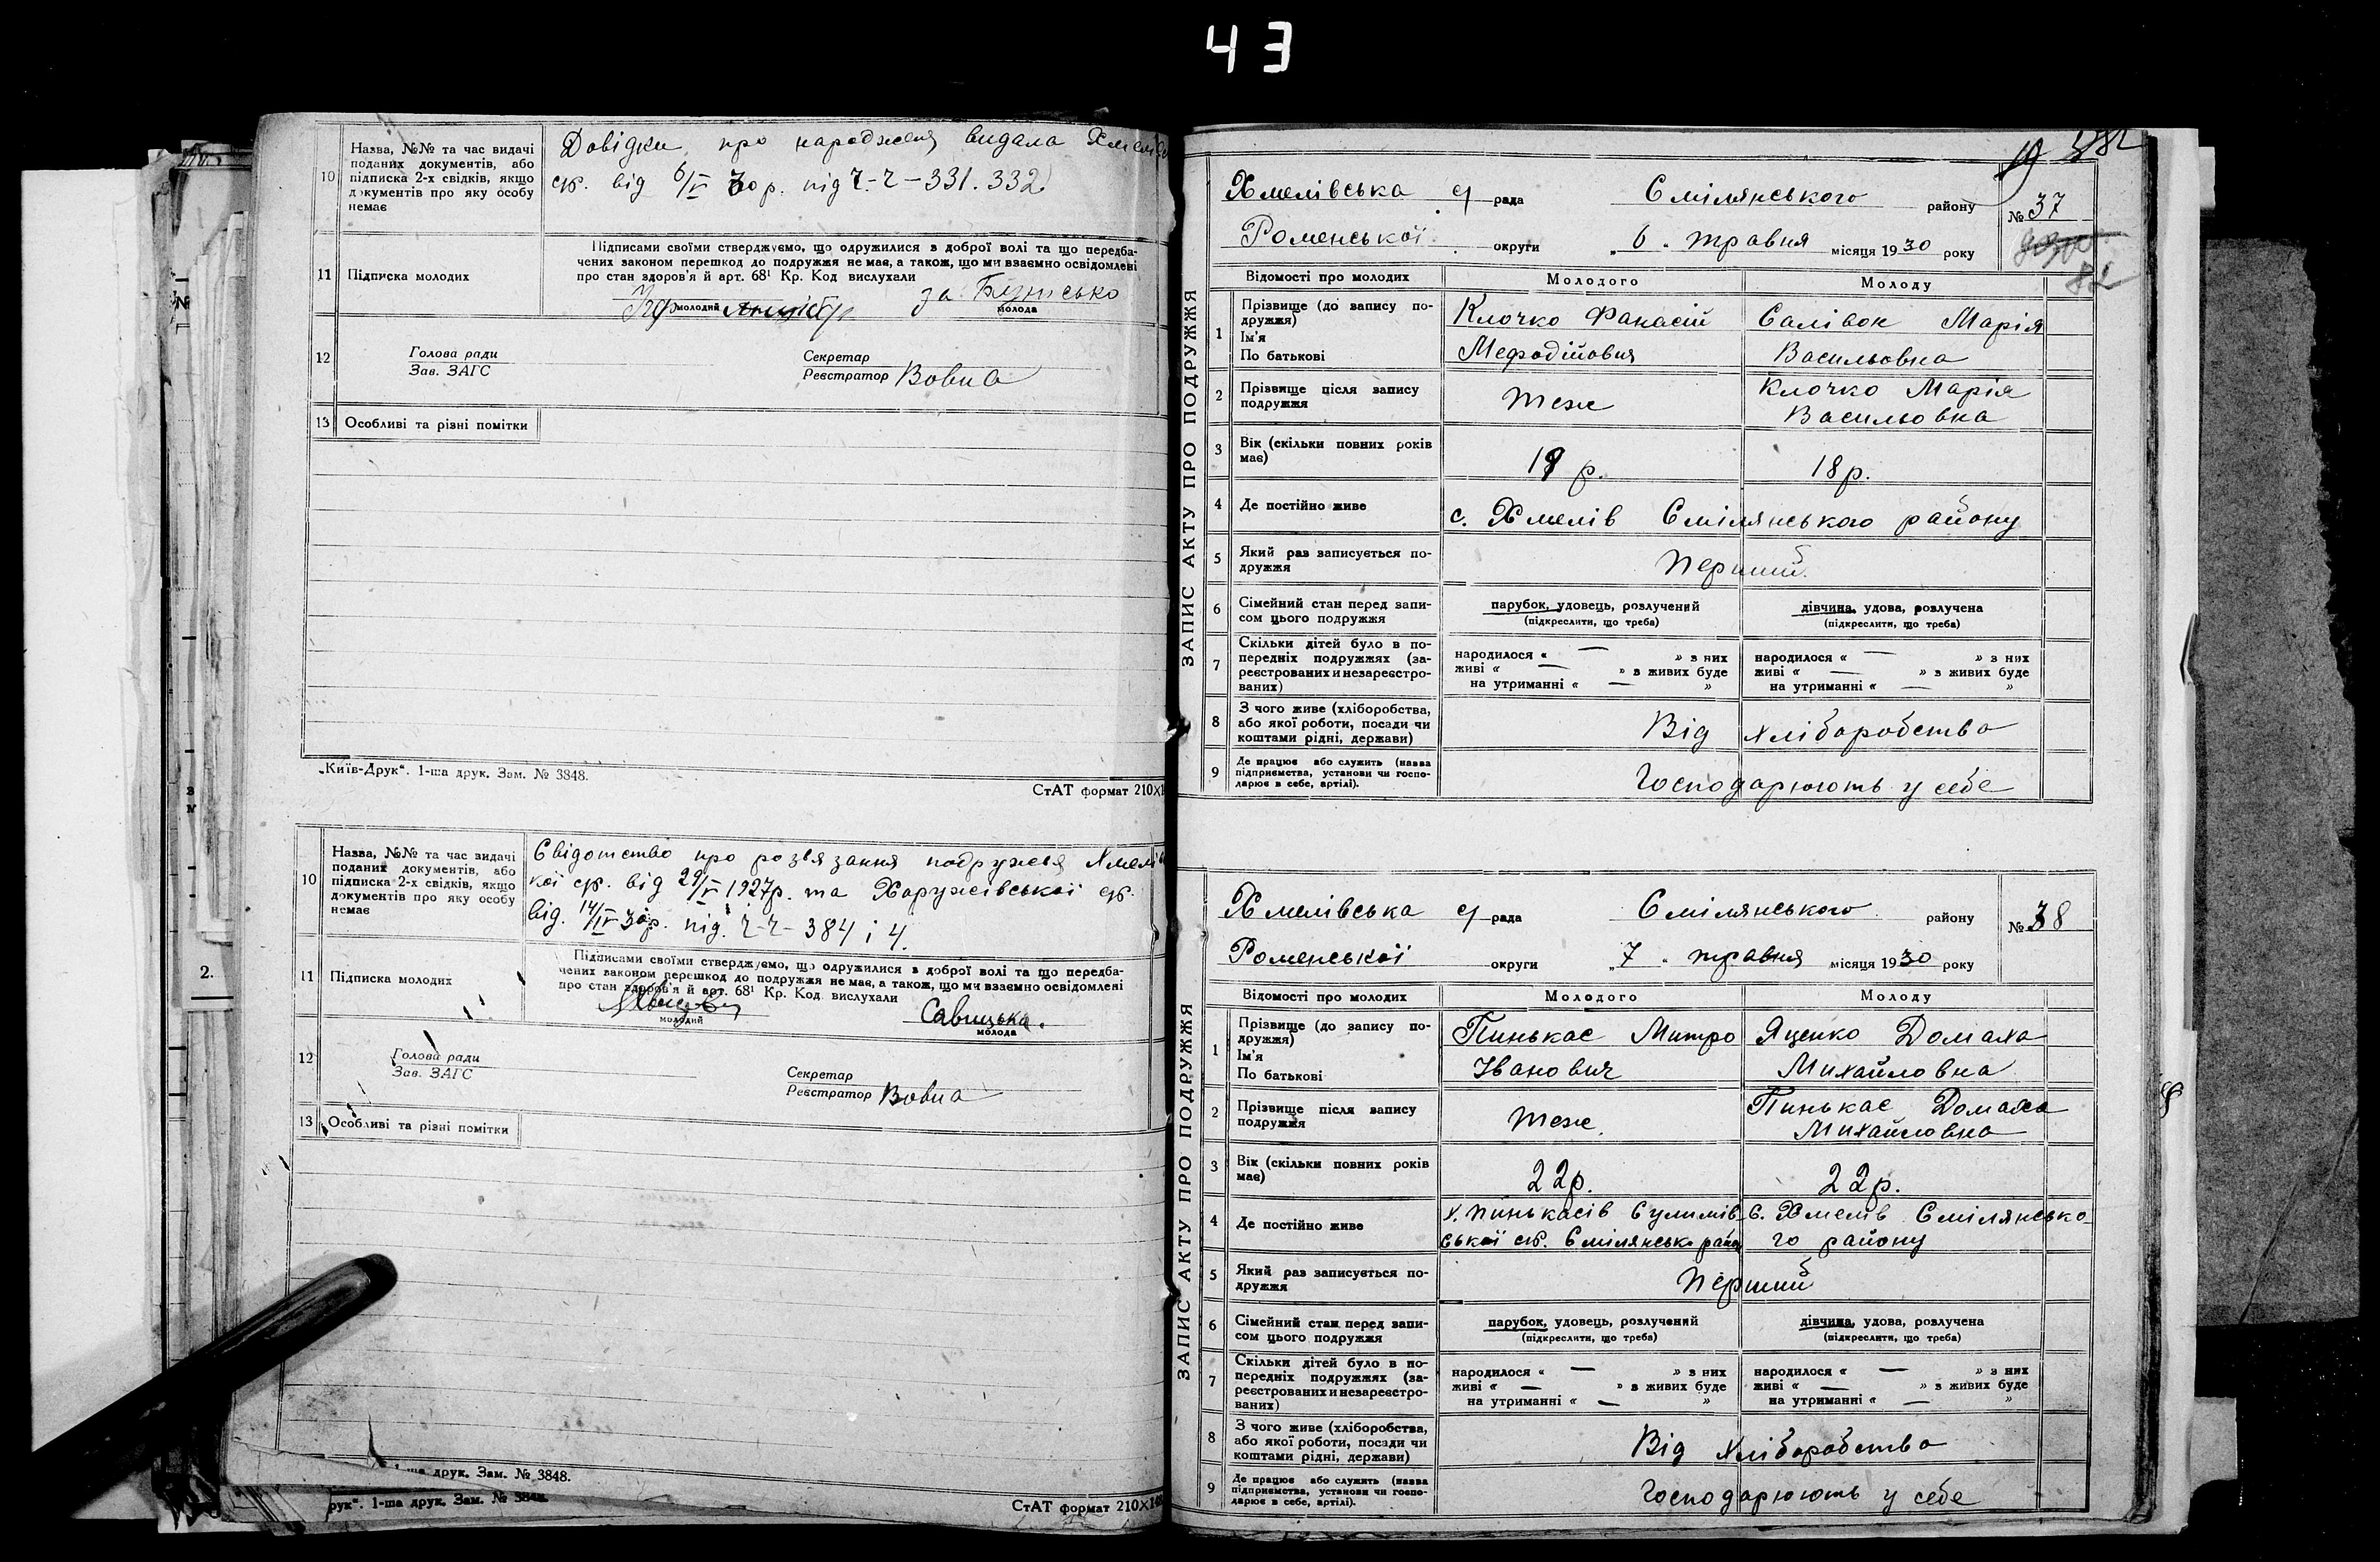 43
10
Назва, №№ та час видачі
поданих документів, або
підписка 2-х свідків, якщо
документів про яку особу
немає
Довідки про народженя видала
ср. від 6/V 30 р. під ч-ч-331.332
11 Підписка молодих
Підписами своїми стверджуємо, що одружилися з доброї волі та що передба-
чених законом перешкод до подружжя не має, а також, що ми взаємно освідомлені
про стан здоров'я й арт. 68¹ Кр. Код вислухали
молодий за молода
12
Голова ради
Зав. ЗАГС
Секретар
Реєстратор Вовна
13 Особливі та різні помітки
„Київ-Друк“. 1-ша друк. Зам. № 3848.
СтАТ формат 210×
10
Назва, №№ та час видачі
поданих документів, або
підписка 2-х свідків, якщо
документів про яку особу
немає
Свідотство про розвязання подружжя Хмелів
кої ср. від 29/V 1927р. та Хоружівської ср.
від. 14/IV 30р. під. ч-ч-384 і 4.
11 Підписка молодих
Підписами своїми стверджуємо, що одружилися з доброї волі та що передба-
чених законом перешкод до подружжя не має, а також, що ми взаємно освідомлені
про стан здоров'я й арт. 68¹ Кр. Код вислухали
молодий
Савицька.
молода
12
Голова ради
Зав. ЗАГС
Секретар
Реєстратор Вовна
13 Особливі та різні помітки
друк. Зам. № 3848.
рук“. 1-ша друк. Зам. № 3848.
СтАТ формат 210×148
2.
ЗАПИС АКТУ ПРО ПОДРУЖЖЯ
19
Хмелівська с/ рада Смілянського району
№ 37
Роменської округи „6“ травня місяця 1930 року
82
Відомості про молодих Молодого Молоду
1
Прізвище (до запису по-
дружжя)
Ім'я
По батькові
Клочко Фанасій
Мефодійович
Салівон Марія
Васильовна
2
Прізвище після запису
подружжя
теж
Клочко Марія
Васильовна
3
Вік (скільки повних років
має)
19 р. 18 р.
4 Де постійно живе
с. Хмелів Смілянського району
5
Який раз записується по-
дружжя
Перший
6
Сімейний стан перед запи-
сом цього подружжя
парубок, удовець, розлучений
(підкреслити, що треба)
дівчина, удова, розлучена
(підкреслити, що треба)
7
Скільки дітей було в по-
передніх подружжях (за-
реєстрованих и незареєстро-
ваних)
народилося « — » з них
живі « — » з живих буде
на утриманні « — »
народилося « — » з них
живі « — » з живих буде
на утриманні « — »
8
З чого живе (хліборобства,
або якої роботи, посади чи
коштами рідні, держави)
Від хліборобства
9
Де працює або служить (назва
підприємства, установи чи госпо-
дарює в себе, артілі).
Господарюють у себе
ЗАПИС АКТУ ПРО ПОДРУЖЖЯ
Хмелівська с/ рада Смілянського району
№ 38
Роменської округи „7“ травня місяця 1930 року
Відомості про молодих Молодого Молоду
1
Прізвище (до запису по-
дружжя)
Ім'я
По батькові
Пинькас Митро
Іванович
Яценко Домаха
Михайловна
2
Прізвище після запису
подружжя
теж.
Пинькас Домаха
Михайловна
3
Вік (скільки повних років
має)
22р. 22р.
4 Де постійно живе
х. Пинькасів Сулимів-
ської ср. Смілянськ. райо
с. Хмелів Смілянсько-
го району
5
Який раз записується по-
дружжя
Перший
6
Сімейний стан перед запи-
сом цього подружжя
парубок, удовець, розлучений
(підкреслити, що треба)
дівчина, удова, розлучена
(підкреслити, що треба)
7
Скільки дітей було в по-
передніх подружжях (за-
реєстрованих и незареєстро-
ваних)
народилося « — » з них
живі « — » з живих буде
на утриманні « — »
народилося « — » з них
живі « — » з живих буде
на утриманні « — »
8
З чого живе (хліборобства,
або якої роботи, посади чи
коштами рідні, держави)
Від хліборобства
9
Де працює або служить (назва
підприємства, установи чи госпо-
дарює в себе, артілі).
Господарюють у себе